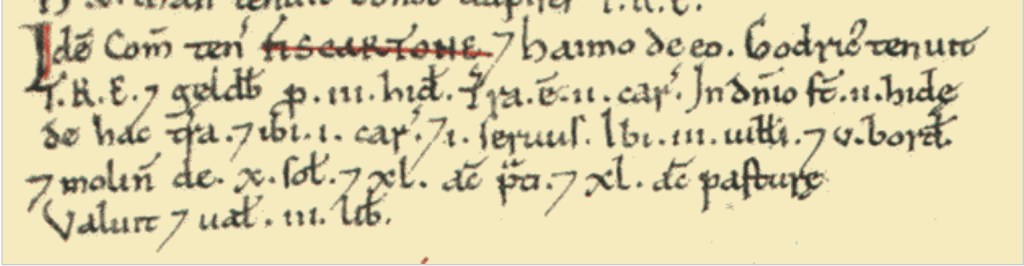 T.R.E.
Idē Com̄ ten' FISCARTONE 7 haimo de eo. Godric' tenuit
T.R.E.7 geldb̄ p.iii.hid̄. T'ra.ē.ii.car'. In dn̄io st̄.ii.hidę
de hac tr̄a.7 ibi.i.car'.7 i.seruus. Ibi.iii.uiłłi.7 v.bord̄.
7 molin̄ de.x.soł.7 xl.ac̄ p̄ti.7 xl.ac̄ pasturę
Valuit 7 uał.iii.lib̄.